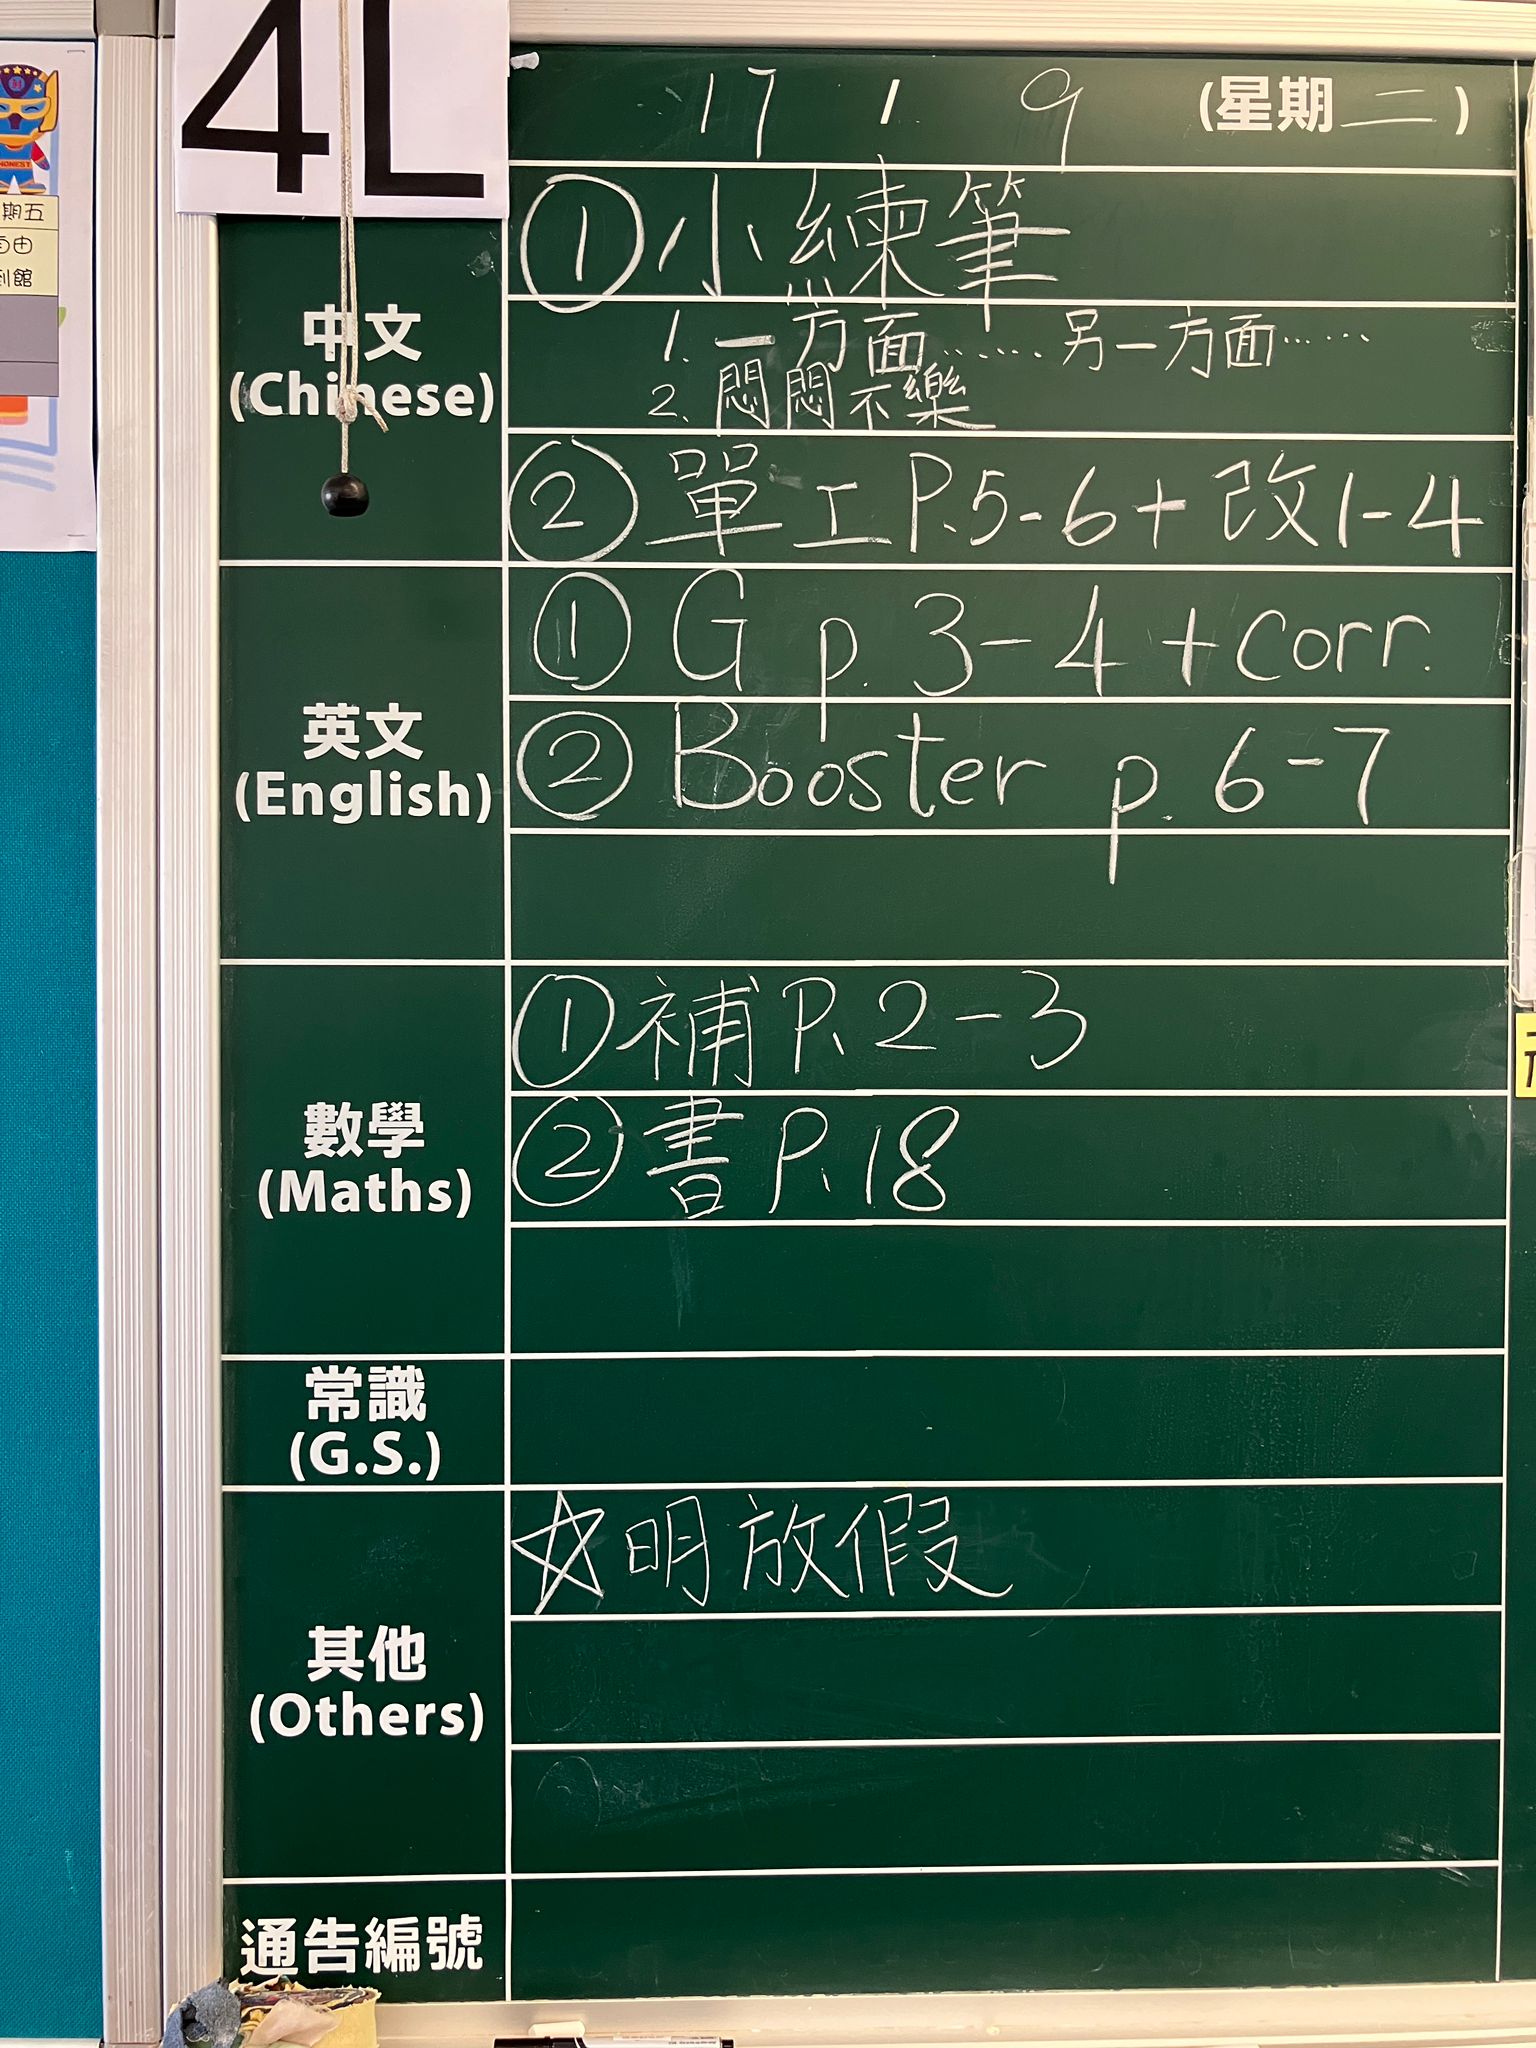 4L
17 / 9 (星期二)
HONEST
期五
自由
到館
中文
(Chinese)
① 小練筆
1. 一方面......另一方面......
2. 悶悶不樂
② 單工P.5-6+改1-4
英文
(English)
① G p. 3-4 +corr.
② Booster p. 6-7
數學
(Maths)
① 補 P. 2-3
② 書 P. 18
常識
(G.S.)
其他
(Others)
☆ 明放假
通告編號